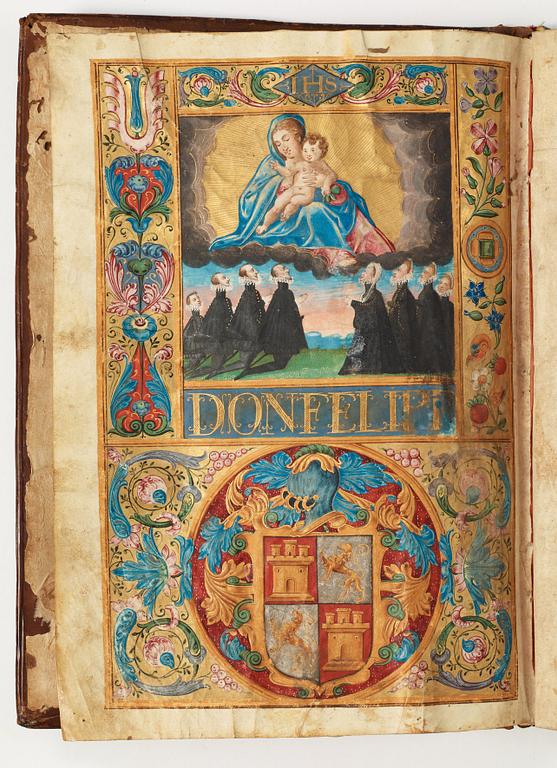 IHS
DONFELIPE